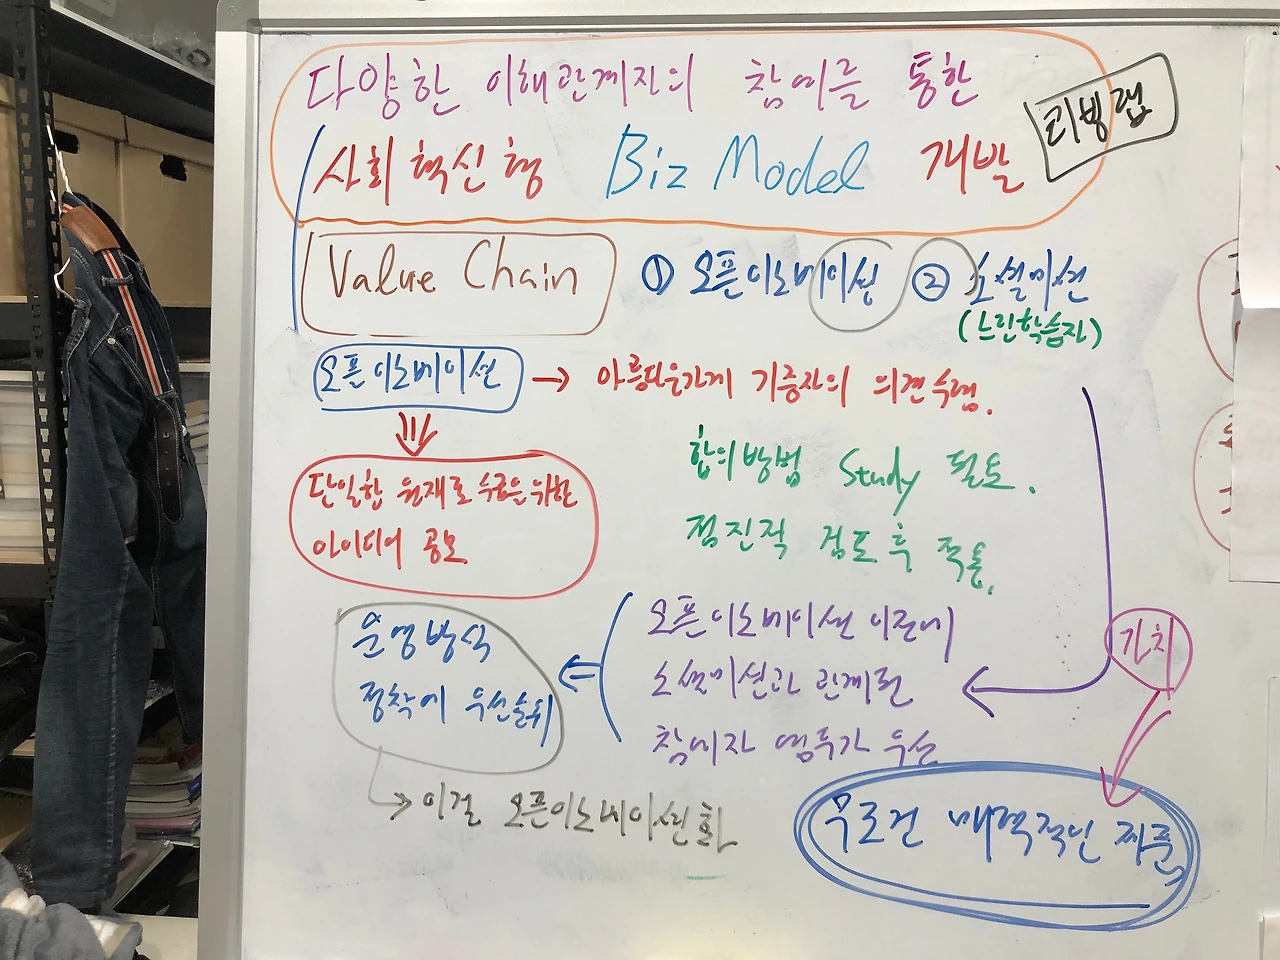 다양한 이해관계자의 참여를 통한
사회혁신형 Biz Model 개발
리빙랩
Value Chain
① 오픈이노베이션 ② 소셜미션
(느린학습자)
오픈이노베이션 → 아름다운가게 기증자의 의견수렴.
단일한 원재료 수급을 위한
아이디어 공모
합의방법 Study 필요.
점진적 검토 후 적용.
오픈이노베이션 이전에
소셜미션과 관계된
참여자 염두가 우선
운영방식
정착에 우선순위
→ 이걸 오픈이노베이션화
가치
무조건 매력적인 제품